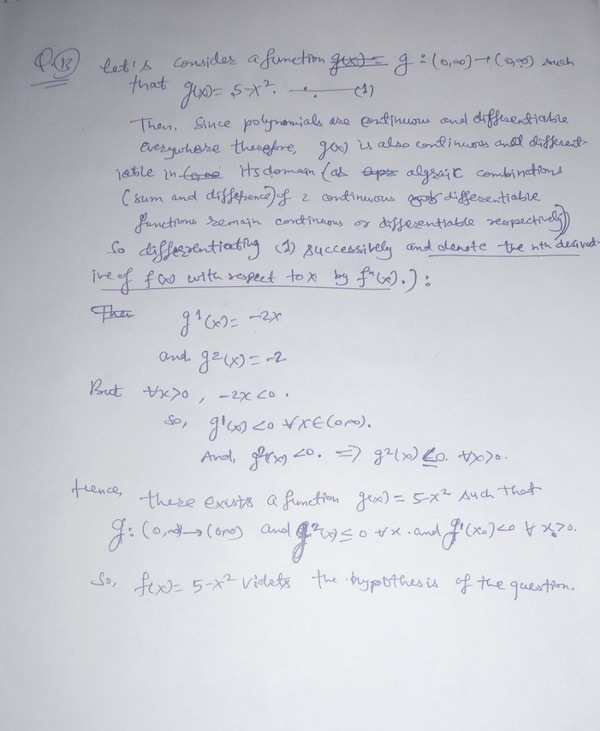 Q.13 Let's consider a function g(x)= g : (0,∞)→(0,∞) such
that g(x) = 5-x². (1)
Then, since polynomials are continuous and differentiable
everywhere therefore, g(x) is also continuous and different-
iable in its domain (as algraic combinations
(sum and difference) of 2 continuous differentiable
functions remain continuous or differentiable respectively))
So differentiating (1) successively and denote the nth derivat-
ive of f(x) with respect to x by fⁿ(x).) :
Then g¹(x) = -2x
and g²(x) = -2
But ∀x>0, -2x<0.
So, g'(x) <0 ∀x∈(0,∞).
And, g²(x) <0. ⇒ g²(x) ≤0. ∀x>0.
Hence, there exists a function g(x) = 5-x² such that
g: (0,∞)→(0,∞) and g²(x) ≤ 0 ∀x. and g'(x₀)<0 ∀ x₀>0.
So, f(x)= 5-x² the hypothesis of the question.